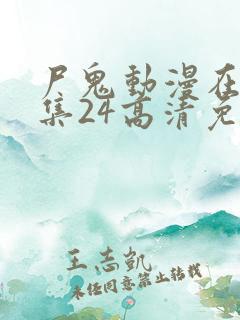 尸鬼動漫在
集24高清免
王志凱
未经同意禁止转载